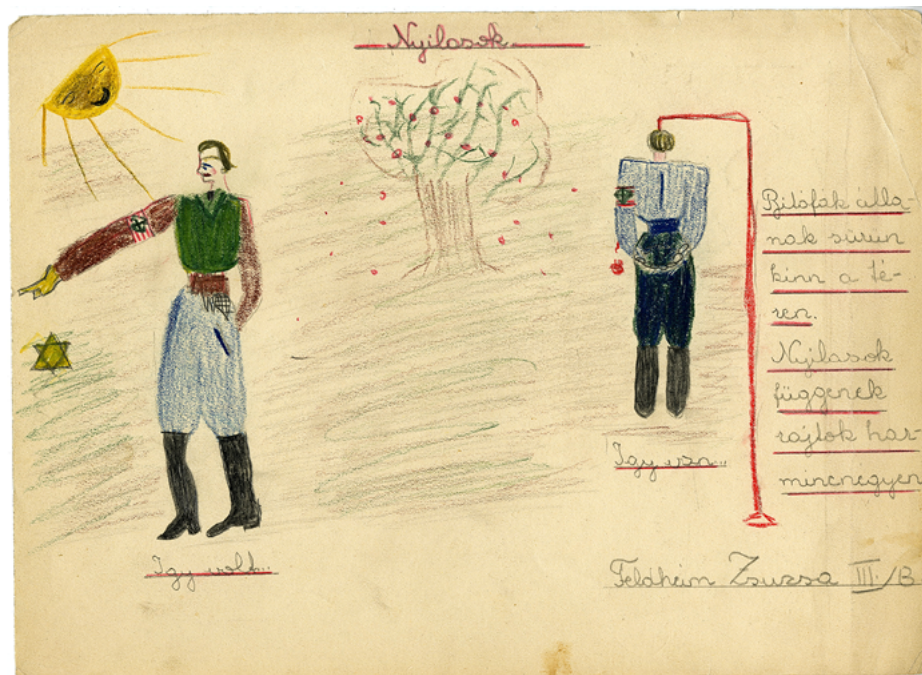 Nyilasok
Bitófák álla-
nak sürün
kinn a té-
ren.
Nyilasok
függenek
rajtok har-
mincnegyen
Igy van...
Igy volt...
Feldheim Zsuzsa III./B